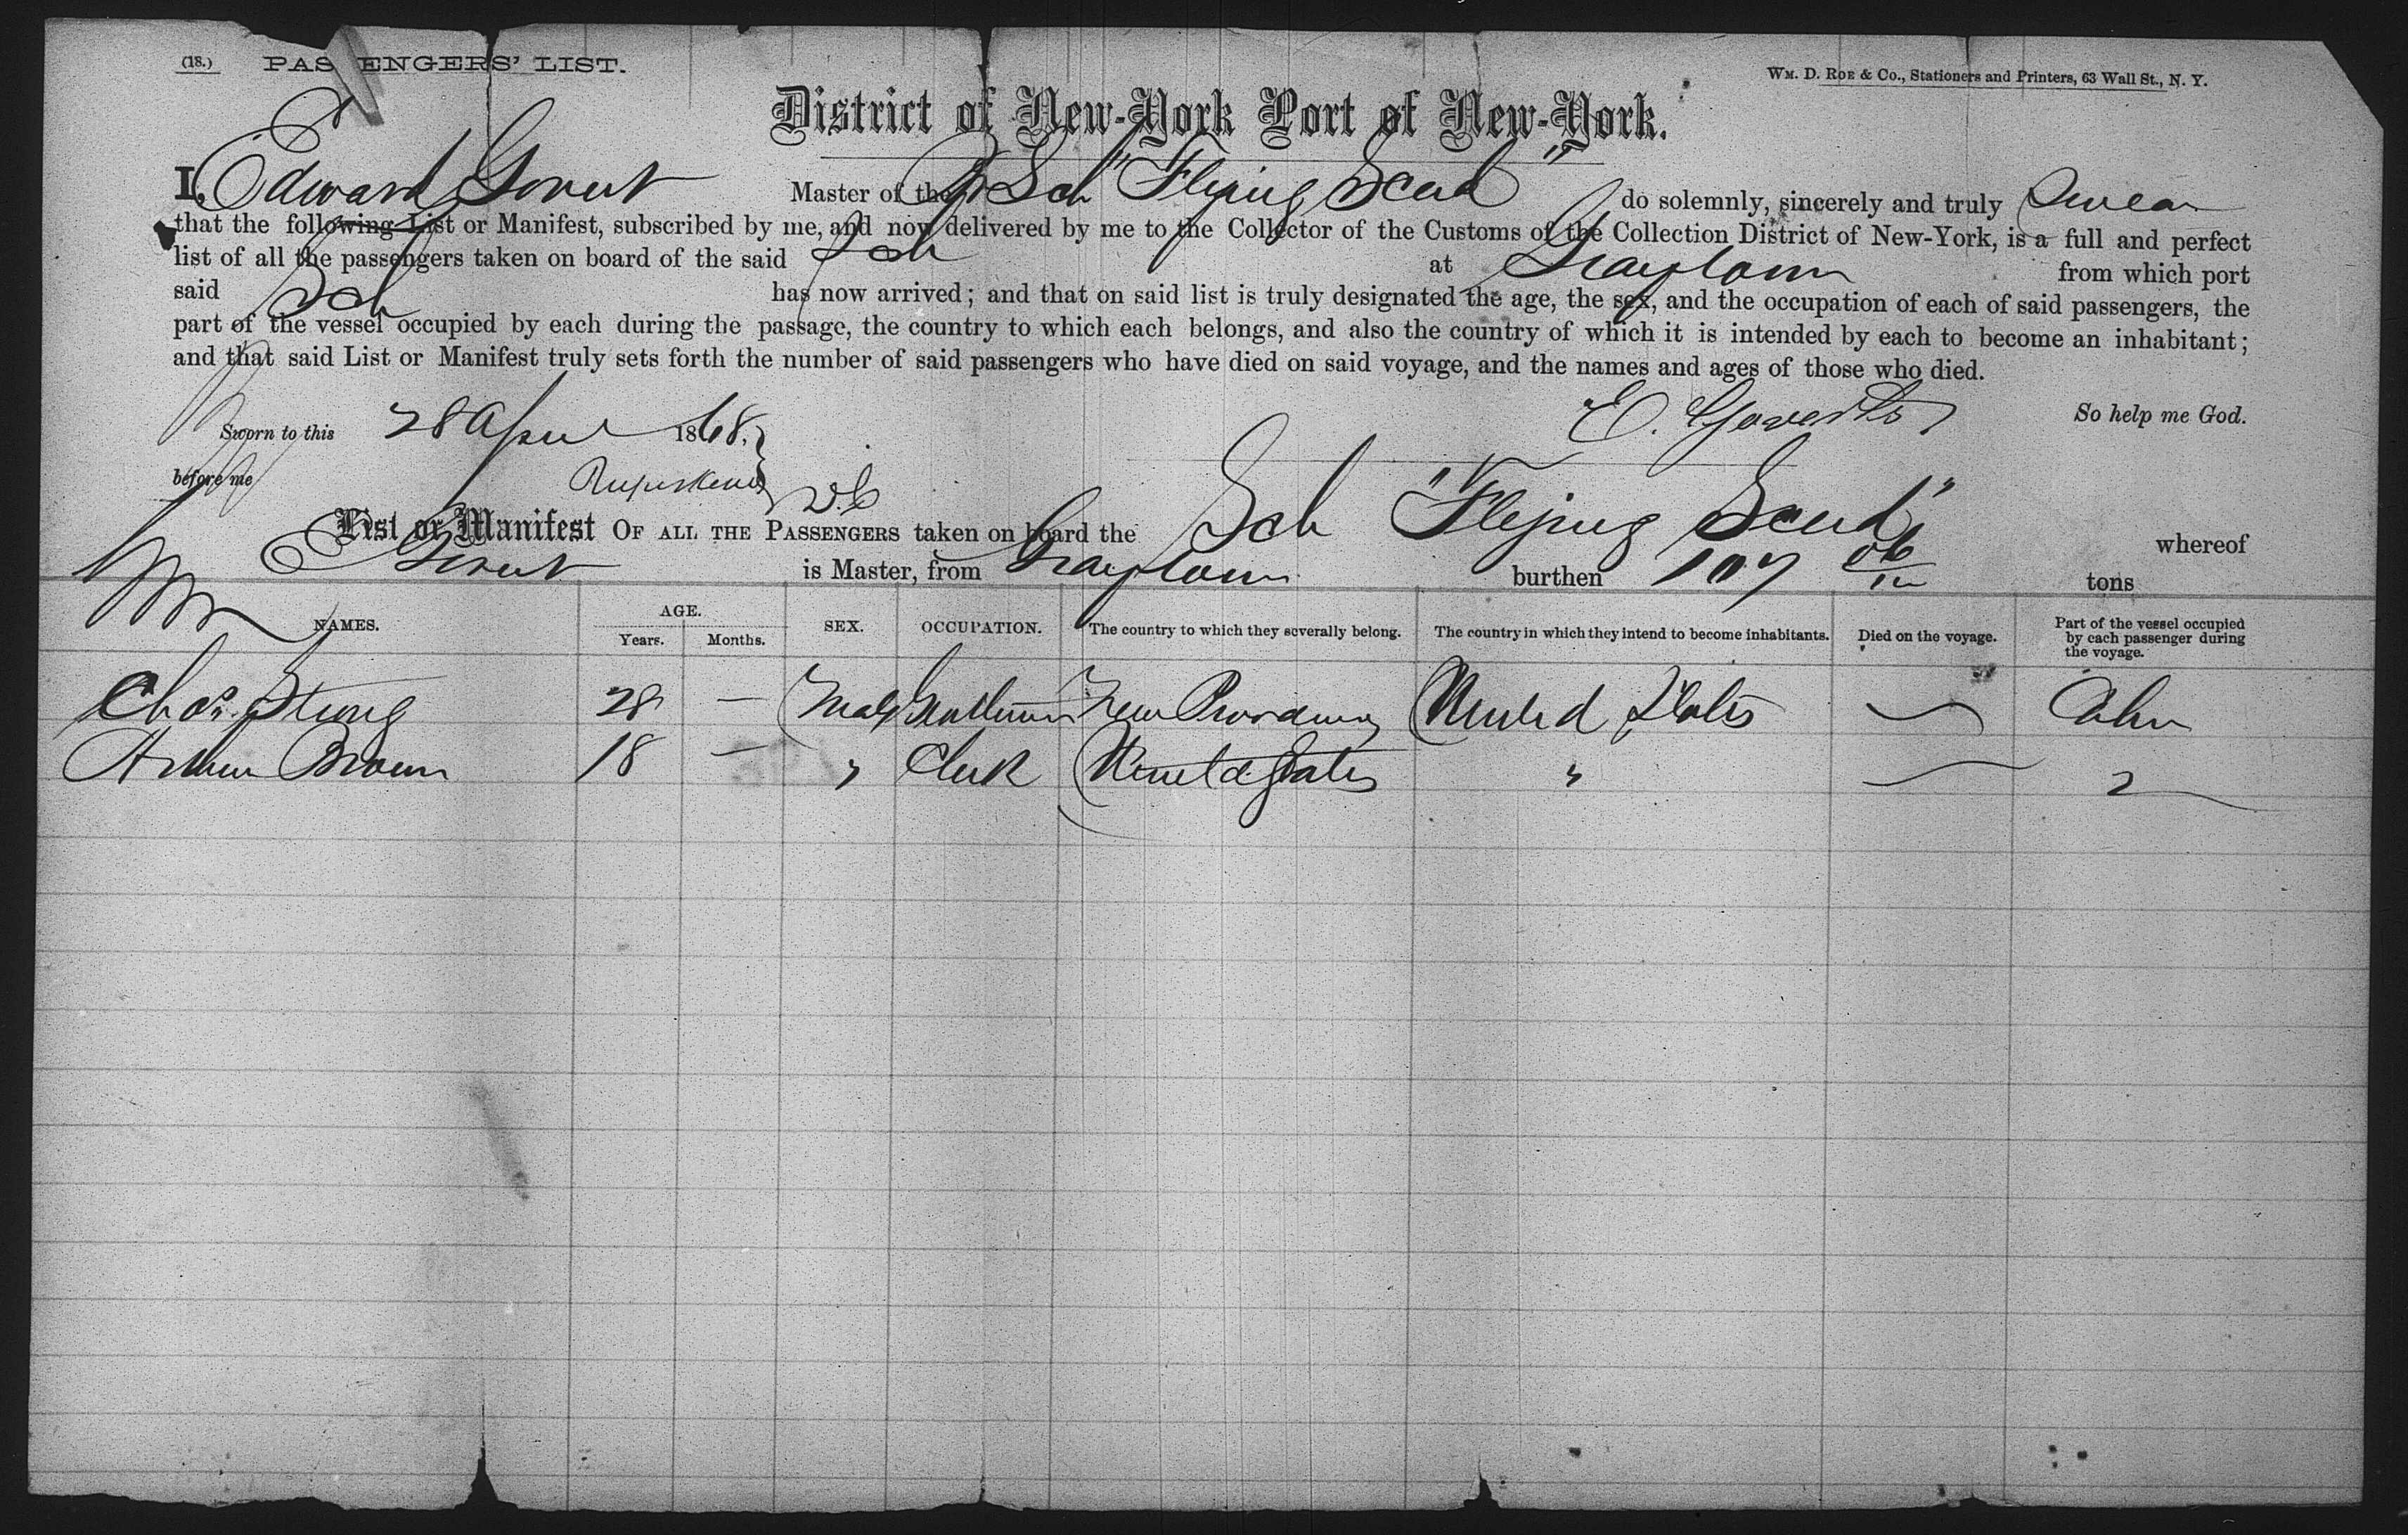 (18.) PASSENGERS' LIST.
WM. D. ROE & Co., Stationers and Printers, 63 Wall St., N. Y.
District of New-York Port of New-York.
I, Edward Master of the Sch "Flying Scud" do solemnly, sincerely and truly Swear
that the following List or Manifest, subscribed by me, and now delivered by me to the Collector of the Customs of the Collection District of New-York, is a full and perfect
list of all the passengers taken on board of the said Sch at Graytown from which port
said Sch has now arrived; and that on said list is truly designated the age, the sex, and the occupation of each of said passengers, the
part of the vessel occupied by each during the passage, the country to which each belongs, and also the country of which it is intended by each to become an inhabitant;
and that said List or Manifest truly sets forth the number of said passengers who have died on said voyage, and the names and ages of those who died.
So help me God.
Sworn to this 28 April 1868.
before me
List or Manifest OF ALL THE PASSENGERS taken on board the Sch "Flying Scud" whereof
E is Master, from Graytown burthen 107 tons
NAMES. AGE. Years. Months. SEX. OCCUPATION. The country to which they severally belong. The country in which they intend to become inhabitants. Died on the voyage. Part of the vessel occupied by each passenger during the voyage.
Chas. 28 — Male Gentleman New Providence United States — Cabin
Arthur Brown 18 — " Clerk United States " — "